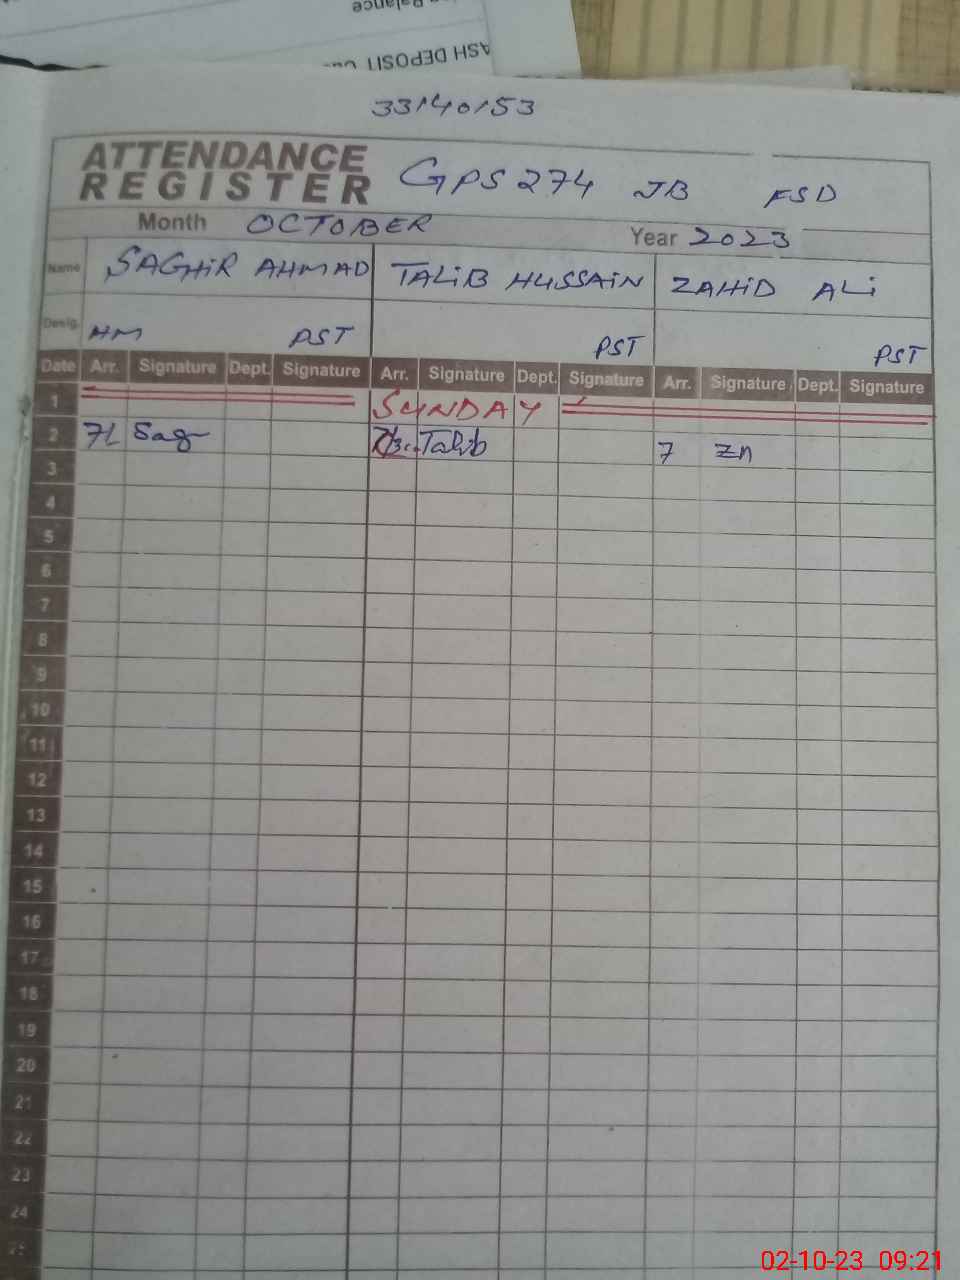 Balance
ASH DEPOSIT
33140153
ATTENDANCE
REGISTER
GPS 274 JB FSD
Month OCTOBER Year 2023
Name SAGHIR AHMAD TALIB HUSSAIN ZAHID ALI
Desig. HM PST PST PST
Date Arr. Signature Dept. Signature Arr. Signature Dept. Signature Arr. Signature Dept. Signature
1 SUNDAY
2 Sag Talib 7 Zn
3
4
5
6
7
8
9
10
11
12
13
14
15
16
17
18
19
20
21
22
23
24
25
02-10-23 09:21